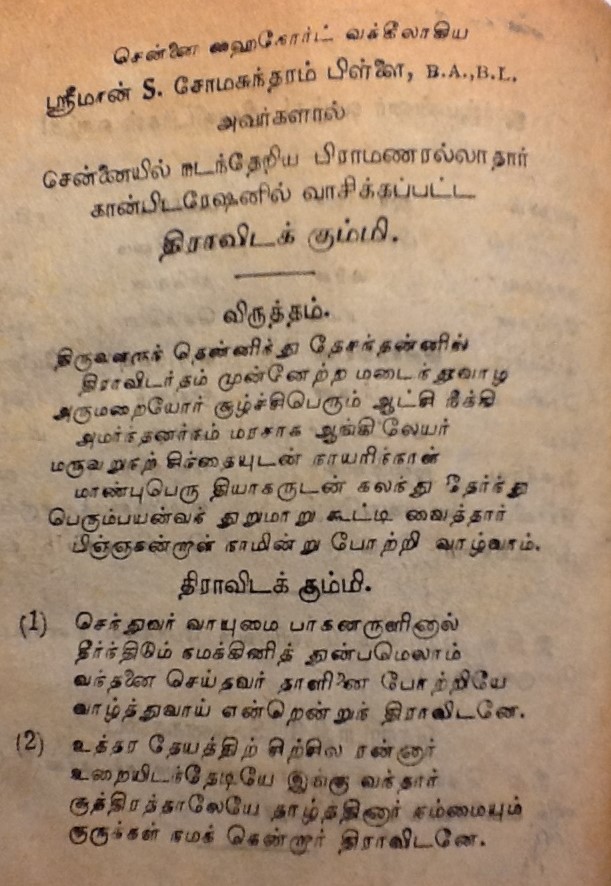 சென்னை ஹைகோர்ட் வக்கீலாகிய
ஸ்ரீமான் S. சோமசுந்தரம் பிள்ளை, B.A.,B.L.
அவர்களால்
சென்னையில் நடந்தேறிய பிராமணரல்லாதார்
கான்பிடரேஷனில் வாசிக்கப்பட்ட
திராவிடக் கும்மி.
விருத்தம்.
திருவளருந் தென்னிந்து தேசந்தன்னில்
திராவிடர்தம் முன்னேற்ற மடைந்துவாழ
அருமறையோர் சூழ்ச்சிபெரும் ஆட்சி நீக்கி
அமர்ந்தனர்நம் மரசாக ஆங்கிலேயர்
மருவறுநற் சிந்தையுடன் நாயரிந்நாள்
மாண்புபெரு தியாகருடன் கலந்து தேர்ந்து
பெரும்பயன்வந் துறுமாறு கூட்டி வைத்தார்
பிஞ்ஞகன்றாள் நாமின்று போற்றி வாழ்வாம்.
திராவிடக் கும்மி.
(1) செந்துவர் வாயுமை பாகனருளினால்
தீர்ந்திடும் நமக்கினித் துன்பமெலாம்
வந்தனை செய்தவர் தாளினை போற்றியே
வாழ்த்துவாய் என்றென்றுந் திராவிடனே.
(2) உத்தர தேயத்திற் சிற்சில ரன்னார்
உறையிடந்தேடியே இங்கு வந்தார்
சூத்திரத்தாலேயே தாழ்த்தினார் நம்மையும்
குருக்கள் நமக் கென்றார் திராவிடனே.